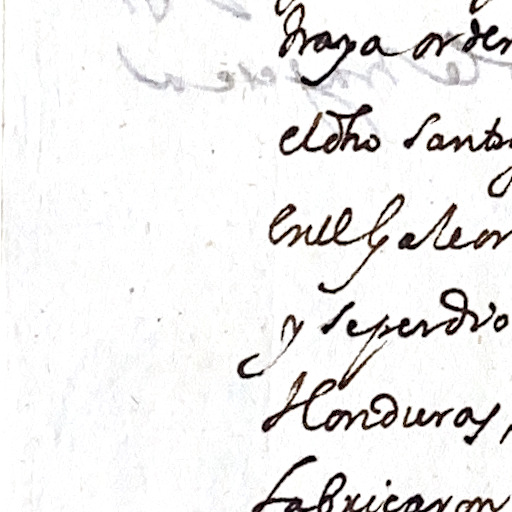 traya orden
el dho Santo
en el Galeon
y se perdio
Honduras,
fabricaron